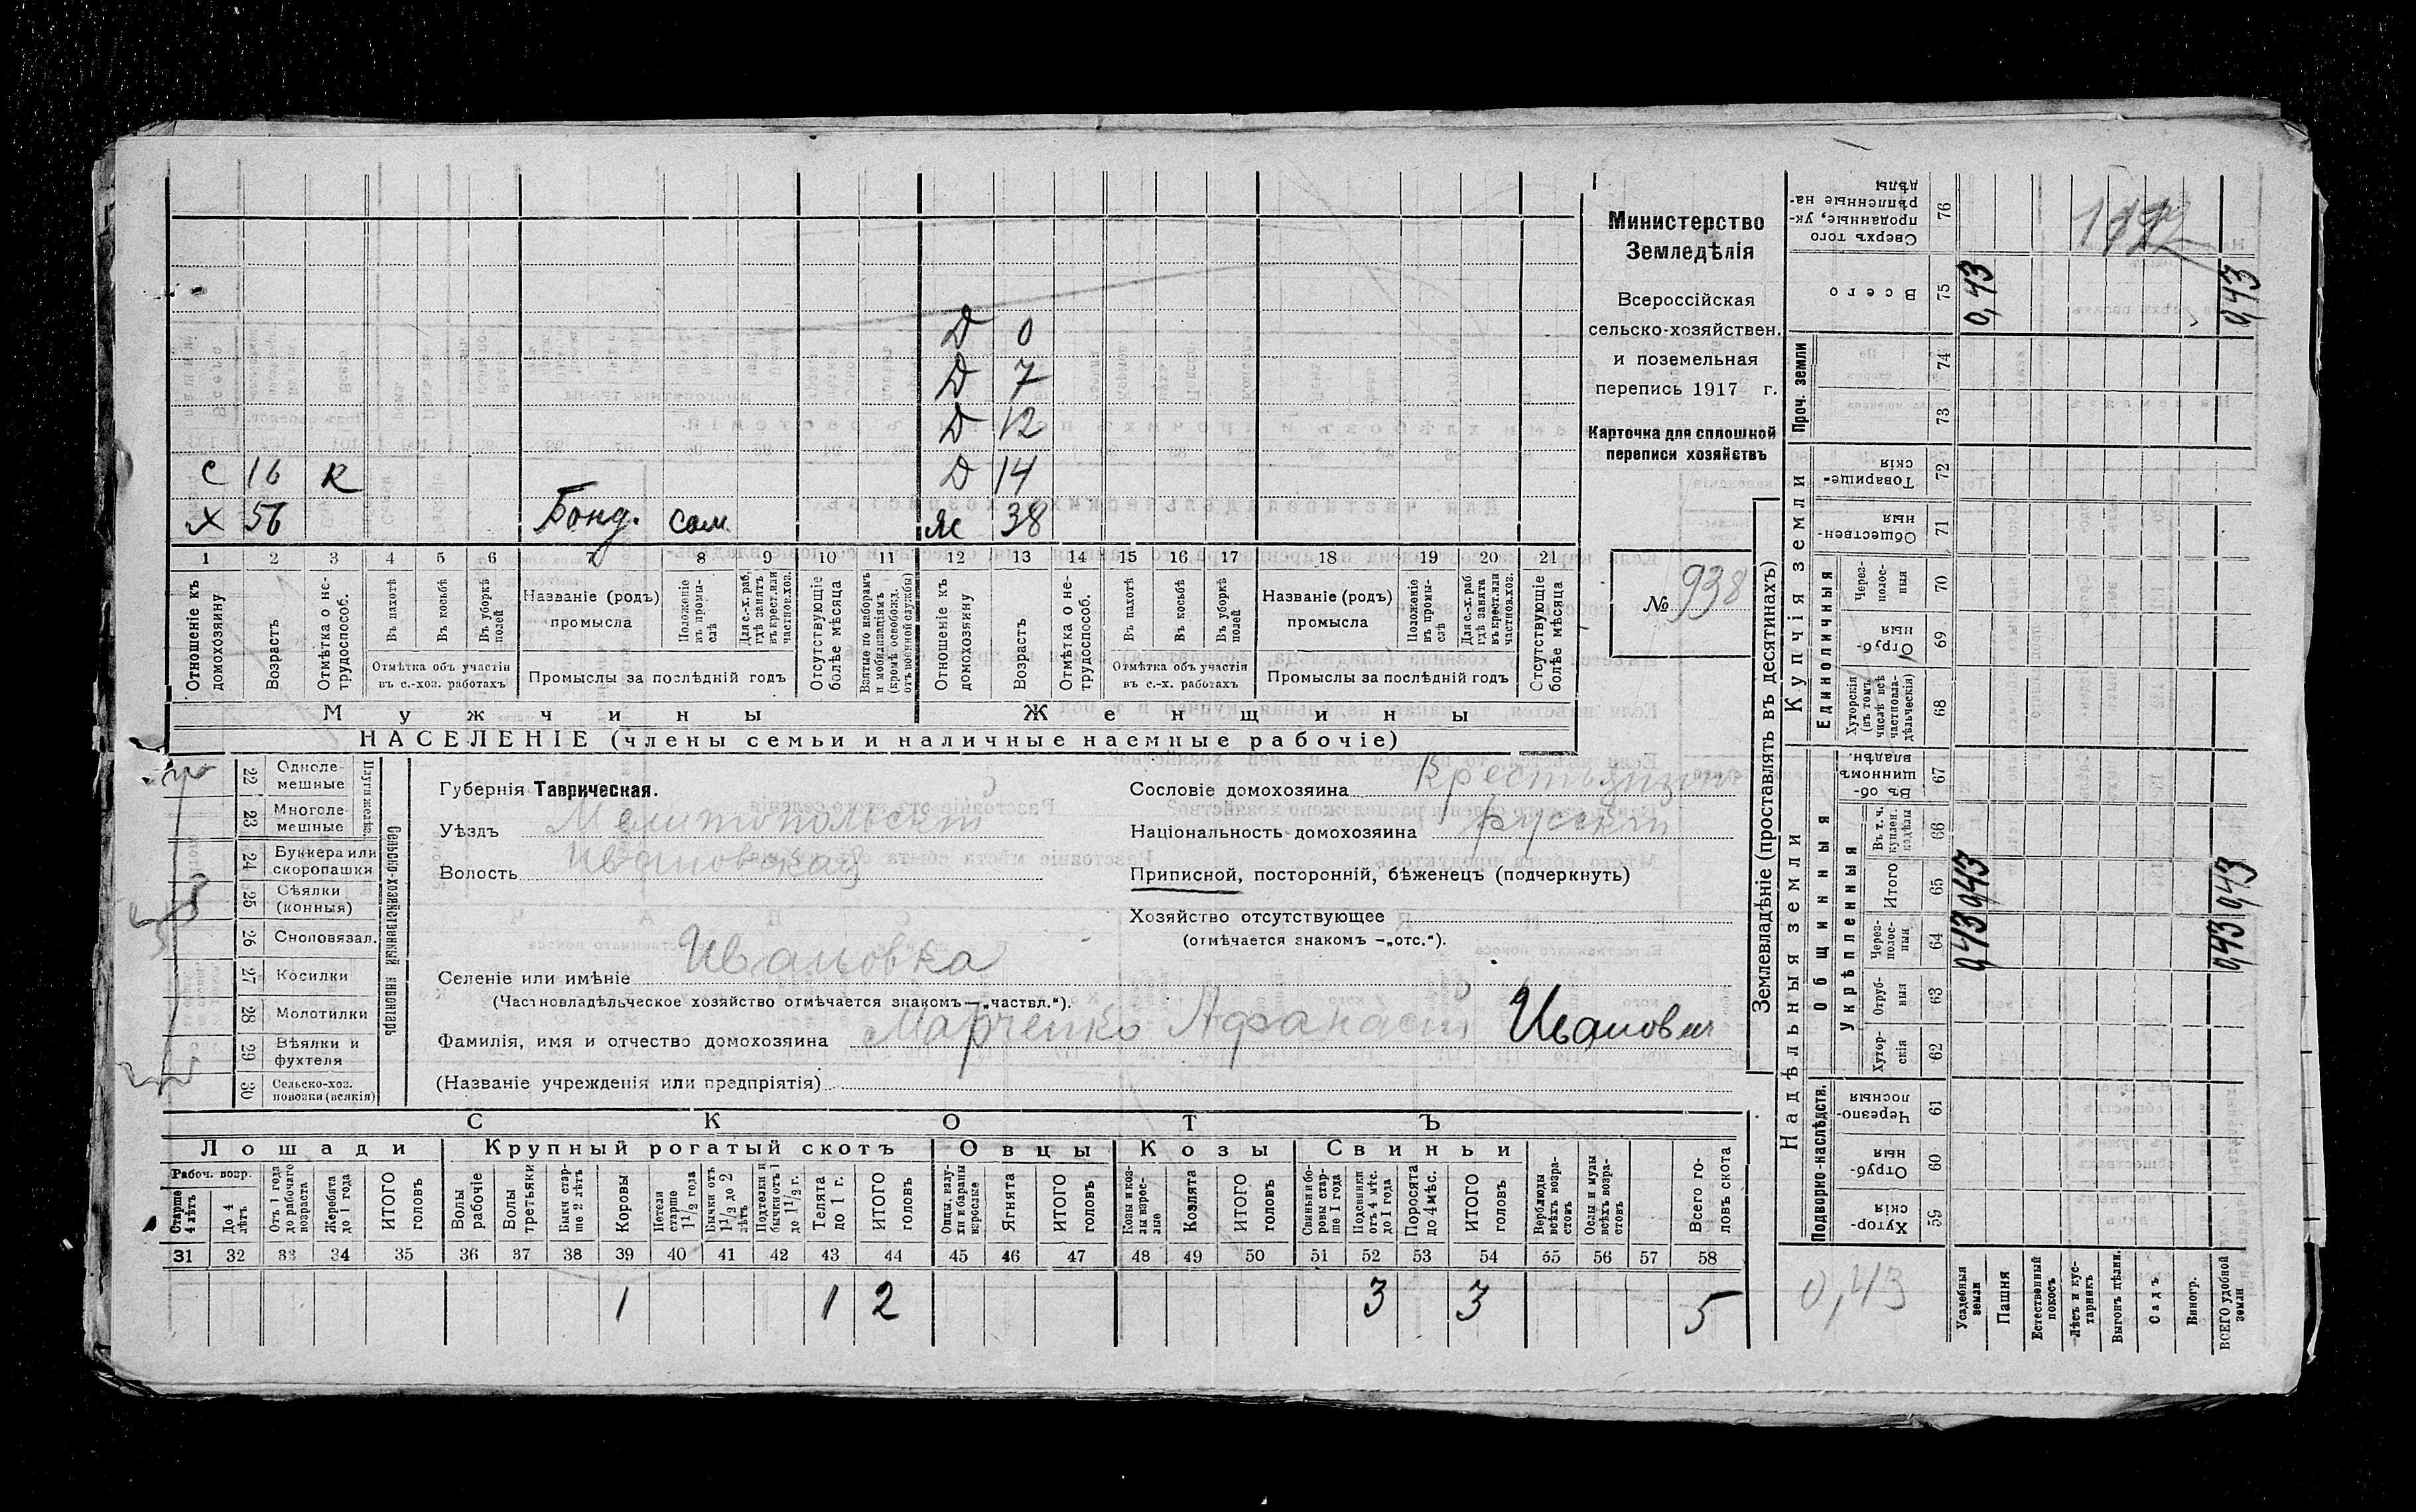 Д 0
Д 7
Д 12
С 16 К Д 14
Х 56 Бонд. сам. Ж 38
1 2 3 4 5 6 7 8 9 10 11 12 13 14 15 16 17 18 19 20 21
Отношеніе къ домохозяину
Возрастъ
Отмѣтка о нетрудоспособ.
Въ пахотѣ
Въ косьбѣ
Въ уборкѣ полей
Отмѣтка объ участіи въ с.-хоз. работахъ
Названіе (родъ) промысла
Положеніе въ промыслѣ
Для с.-х. раб. гдѣ занятъ въ крест. или частнов. хоз.
Промыслы за послѣдній годъ
Отсутствующіе болѣе мѣсяца
Взятые по наборамъ и мобилизаціямъ (кромѣ освобожд. отъ военной службы)
Отношеніе къ домохозяину
Возрастъ
Отмѣтка о нетрудоспособ.
Въ пахотѣ
Въ косьбѣ
Въ уборкѣ полей
Отмѣтка объ участіи въ с.-х. работахъ
Названіе (родъ) промысла
Положеніе въ промыслѣ
Для с.-х. раб гдѣ занята въ крест. или частнов. хоз.
Промыслы за послѣдній годъ
Отсутствующіе болѣе мѣсяца
Мужчины Женщины
НАСЕЛЕНІЕ (члены семьи и наличные наемные рабочіе)
Министерство
Земледѣлія
Всероссійская
сельско-хозяйствен.
и поземельная
перепись 1917 г.
Карточка для сплошной
переписи хозяйствъ
№ 938
Сельско-хозяйственный инвентарь
22 Одноле-мешные
23 Многоле-мешные
24 Буккера или скоропашки
25 Сѣялки (конныя)
26 Сноповязал.
27 Косилки
28 Молотилки
29 Вѣялки и фухтеля
30 Сельско-хоз. повозки (всякія)
Губернія Таврическая.
Уѣздъ Мелитопольскій
Волость Ивановская
Селеніе или имѣніе Ивановка
(Частновладѣльческое хозяйство отмѣчается знакомъ—„частвл.“).
Фамилія, имя и отчество домохозяина Марченко Афанасій Иванович
(Названіе учрежденія или предпріятія)
Сословіе домохозяина Крестьянинъ
Національность домохозяина русскій
Приписной, посторонній, бѣженецъ (подчеркнуть)
Хозяйство отсутствующее
(отмѣчается знакомъ —„отс.“).
СКОТЪ
Лошади Крупный рогатый скотъ Овцы Козы Свиньи
Рабоч. возр.
Старше 4 лѣтъ
До 4 лѣтъ
Отъ 1 года до рабочаго возраста
Жеребята до 1 года
ИТОГО головъ
Волы рабочіе
Волы третьяки
Быки старше 2 лѣтъ
Коровы
Нетели старше 1 1/2 года
Бычки отъ 1 1/2 до 2 лѣтъ
Подтелки и бычки отъ 1 до 1 1/2 г.
Телята до 1 г.
ИТОГО головъ
Овцы, валухи и бараны взрослые
Ягнята
ИТОГО головъ
Козы и козлы взрослые
Козлята
ИТОГО головъ
Свиньи и боровы старше 1 года
Подсвинки отъ 4 мѣс. до 1 года
Поросята до 4 мѣс.
ИТОГО головъ
Верблюды всѣхъ возрастовъ
Ослы и мулы всѣхъ возрастовъ
Всего головъ скота
31 32 33 34 35 36 37 38 39 40 41 42 43 44 45 46 47 48 49 50 51 52 53 54 55 56 57 58
1 1 2 3 3 5
Землевладѣніе (проставлять въ десятинахъ)
Надѣльныя земли
Купчія земли
Проч. земли
Подворно-наслѣдств.
Общинныя
Укрѣпленныя
Единоличныя
Сверхъ того проданные, укрѣпленные надѣлы 76
Всего 75 0,43 0,43
74
73
Товарищескія 72
Общественныя 71
Черезполосныя 70
Отрубныя 69
Хуторскія (въ томъ числѣ всѣ частновладѣльческія) 68
Въ общинномъ владѣн. 67
Въ т. ч. куплен. надѣлы 66
Итого 65 0,43 0,43
Черезполосныя 64 0,43 0,43
Отрубныя 63
Хуторскія 62
Черезполосныя 61
Отрубныя 60
Хуторскія 59
0,43
Усадебныя земли
Пашня
Естественный покосъ
Лѣсъ и кустарникъ
Выгонъ цѣлин.
Садъ
Виногр.
ВСЕГО удобной земли